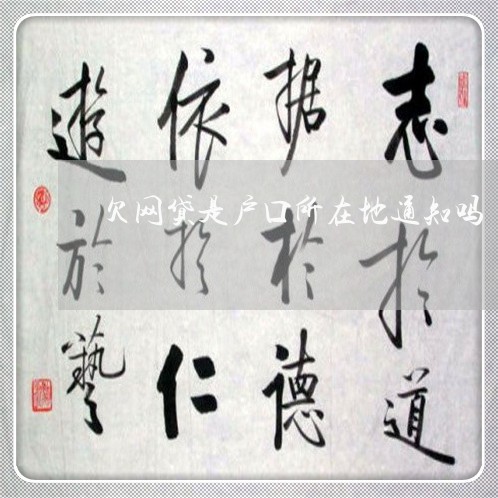 志扵道
据於德
依扵仁
遊於藝
欠网贷是户口所在地通知吗